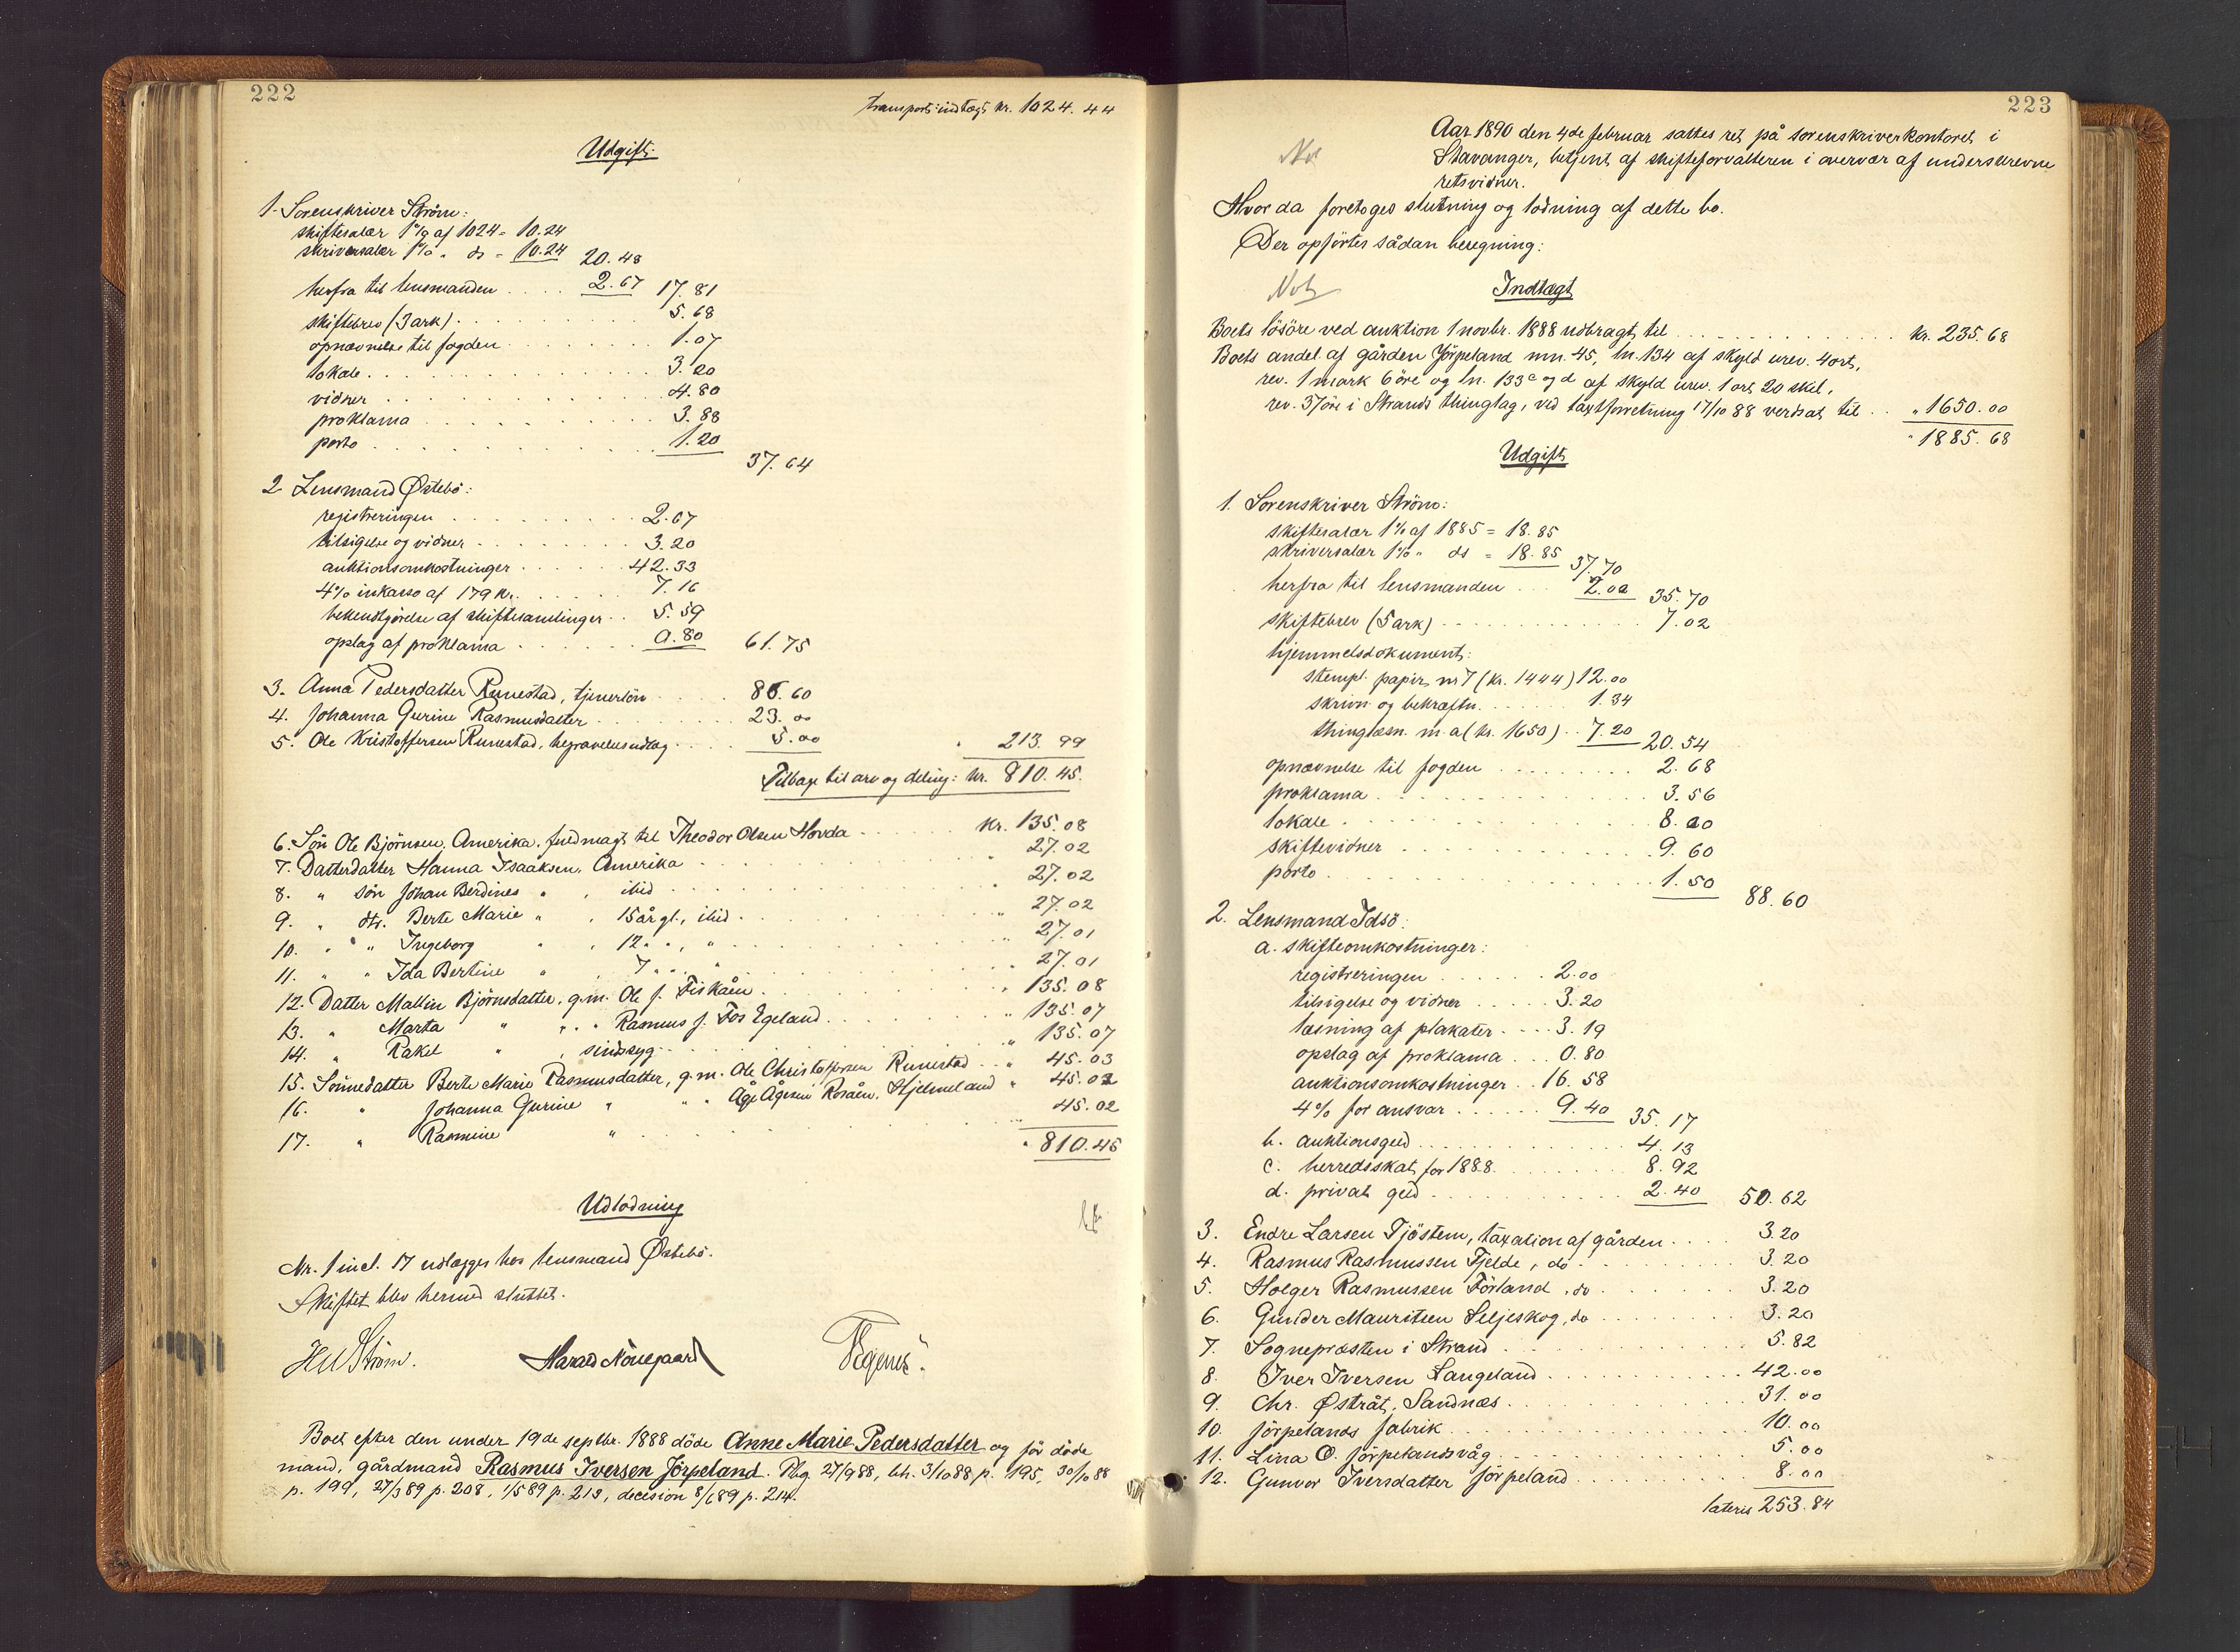 222
transport: indtægt kr. 1024.44
Udgift:
1. Sorenskriver Strøm:
skiftesalær 1% af 1024 = 10.24
skriversalær 1% " do = 10.24 20.48
herfra til lensmanden . . . . 2.67 17.81
skiftebrev (3 ark) . . . . 5.68
opnævnelse til fogden . . . . 1.07
lokale . . . . 3.20
vidner . . . . 4.80
proklama . . . . 3.88
porto . . . . 1.20
37.64
2 Lensmand Østebö:
registreringen . . . . 2.67
tilsigelse og vidner . . . . 3.20
auktionsomkostninger . . . . 42.33
4% inkasso af 179 kr. . . . . 7.16
bekendtgjörelse af skiftesamlinger . . 5.59
opslag af proklama . . . . 0.80 61.75
3. Anna Pedersdatter Runestad, tjenerlön . . . 85.60
4. Johanna Gurine Rasmusdatter . . . . 23.00
5. Ole Kristoffersen Runestad, begravelsesudlæg . . . . 5.00 " 213.99
Tilbage til arv og deling: kr. 810.45.
6. Sön Ole Björnsen, Amerika, fuldmagt til Theodor Olsen Hovda . . . . kr. 135.08
7. Datterdatter Hanna Isaaksen, Amerika . . . . " 27.02
8. " sön Johan Berdines " , ibid . . . . " 27.02
9. " dtr. Berte Marie " , 15 år gl., ibid . . . . " 27.02
10. " " Ingeborg " , 12 " " , " . . . . " 27.01
11. " " Ida Bertine " , 7 " " , " . . . . " 27.01
12. Datter Mallin Björnsdatter, g.m. Ole J. Fiskåen . . . . " 135.08
13. " Marta " " " " Rasmus J. Fos Egeland . . . . " 135.07
14. " Rakel " , sindssyg . . . . " 135.07
15. Sönnedatter Berte Marie Rasmusdatter, g.m. Ole Christoffersen Runestad . . " 45.03
16. " Johanna Gurine " " " Åge Ågesen Rosåen, Hjelmeland " 45.02
17. " Rasmine " . . . . 45.02
" 810.45
Udlodning
Nr. 1 incl. 17 udlægges hos lensmand Østebö.
Skiftet blev hermed sluttet.
HWStrøm. Harald Nörregaard
Boet efter den under 19de septbr. 1888 döde Anne Marie Pedersdatter og för döde
mand, gårdmand Rasmus Iversen Jörpeland. Rbg. 27/9 88, beh. 3/10 88 p. 195, 30/10 88
p. 199, 27/3 89 p. 208, 1/5 89 p. 213, decision 8/6 89 p. 214.
223
Aar 1890 den 4de februar sattes ret på sorenskriverkontoret i
Stavanger, betjent af skifteforvalteren i overvær af underskrevne
retsvidner.
Hvor da foretoges slutning og lodning af dette bo.
Der opförtes sådan beregning:
Not
Indtægt
Boets lösöre ved auktion 1 novbr. 1888 udbragt til . . . . kr. 235.68
Boets andel af gården Jörpeland mn. 45, ln. 134 af skyld urev. 4 ort,
rev. 1 mark 6 öre og ln. 133 c og d af skyld urev. 1 ort 20 skil,
rev. 37 öre i Strands thinglag, ved taxtforretning 17/10 88 verdsat til . . " 1650.00
" 1885.68
Udgift
1. Sorenskriver Ström:
skiftesalær 1% af 1885 = 18.85
skriversalær 1% " do = 18.85 37.70
herfra til lensmanden . . . 2.00 35.70
skiftebrev (5 ark) . . . . 7.02
hjemmelsdokument:
stempl. papir nr 7 (kr. 1444) 12.00
skrivn. og bekræftn. . . . . 1.34
thinglæsn. m. a (kr. 1650) . . 7.20 20.54
opnævnelse til fogden . . . . 2.68
proklama . . . . 3.56
lokale . . . . 8.00
skiftevidner . . . . 9.60
porto . . . . 1.50 88.60
2. Lensmand Idsö:
a. skifteomkostninger:
registreringen . . . . 2.00
tilsigelse og vidner . . . . 3.20
læsning af plakater . . . . 3.19
opslag af proklama . . . 0.80
auktionsomkostninger . . 16.58
4% for ansvar . . . . 9.40 35.17
b. auktionsgeld . . . . 4.13
c. herredsskat for 1888 . . . . 8.92
d. privat geld . . . . 2.40 50.62
3. Endre Larsen Tjöstem, taxation af gården . . . . 3.20
4. Rasmus Rasmussen Fjelde, do . . . . 3.20
5. Holger Rasmussen Förland, do . . . . 3.20
6. Gunder Mauritsen Seljeskog, do . . . . 3.20
7. Sognepræsten i Strand . . . . 5.82
8. Iver Iversen Langeland . . . . 42.00
9. Chr. Østråt, Sandnæs . . . . 31.00
10. Jörpelands fabrik . . . . 10.00
11. Lina O. Jörpelandsvåg . . . . 5.00
12. Gunvor Iversdatter Jörpeland . . . . 8.00
lateris 253.84